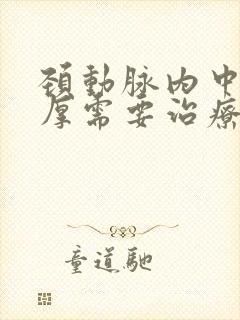 頚動脉内中
厚需要治療
童道馳